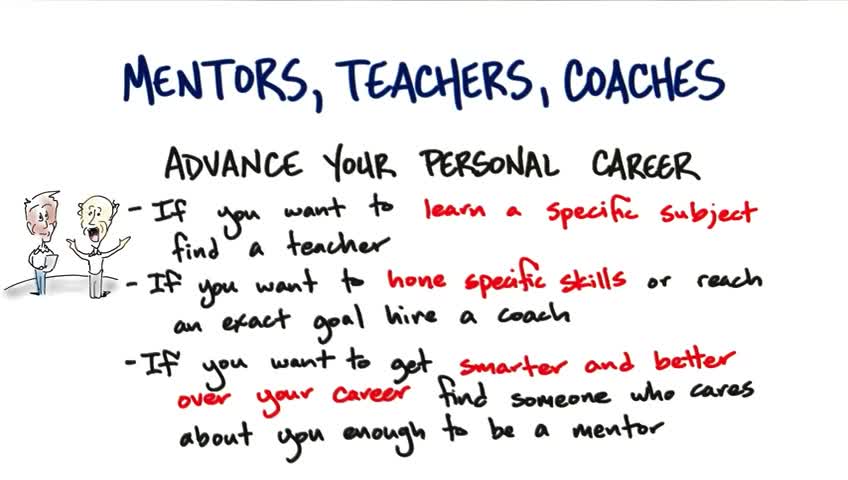 MENTORS, TEACHERS, COACHES
ADVANCE YOUR PERSONAL CAREER
- If you want to learn a specific subject
find a teacher
- If you want to hone specific skills or reach
an exact goal hire a coach
- If you want to get smarter and better
over your career find someone who cares
about you enough to be a mentor